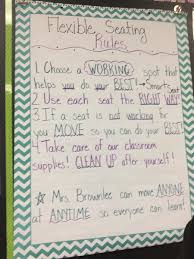 Flexible Seating
Rules
1. Choose a WORKING spot that
helps you do your BEST! →Smart Seat
2. Use each seat the RIGHT WAY!
3. If a seat is not working for
you MOVE so you can do your BEST!
4. Take care of our classroom
supplies! CLEAN UP after yourself!
☆ Mrs. Brownlee can move ANYONE
at ANYTIME so everyone can learn!